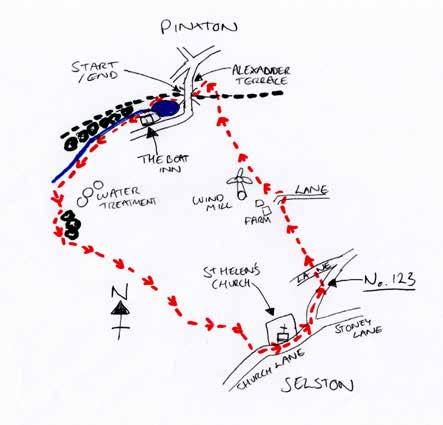 PINXTON
START
/END
ALEXANDER
TERRACE
THE BOAT
INN
WATER
TREATMENT
WIND
MILL
FARM
LANE
LANE
No. 123
ST HELEN'S
CHURCH
STONEY
LANE
CHURCH LANE
SELSTON
N